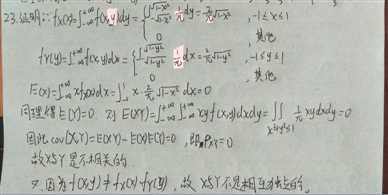 23.证明: fX(x)=∫_{-∞}^{+∞} f(x,y)dy = { ∫_{-√(1-x²)}^{√(1-x²)} 1/π dy = 2/π √(1-x²), -1≤x≤1
0 , 其他
fY(y)=∫_{-∞}^{+∞} f(x,y)dx = { ∫_{-√(1-y²)}^{√(1-y²)} 1/π dx = 2/π √(1-y²), -1≤y≤1
0 , 其他
E(X)=∫_{-∞}^{+∞} xfX(x)dx = ∫_{-1}^{1} x·2/π √(1-x²) dx = 0
同理得E(Y)=0 又 E(XY)=∫_{-∞}^{+∞}∫_{-∞}^{+∞} xyf(x,y)dxdy = ∬_{x²+y²≤1} 1/π xydxdy=0
因此cov(X,Y)=E(XY)-E(X)E(Y)=0, 即ρXY=0
故X与Y是不相关的
又因为f(x,y)≠fX(x)·fY(y), 故X与Y不是相互独立的.